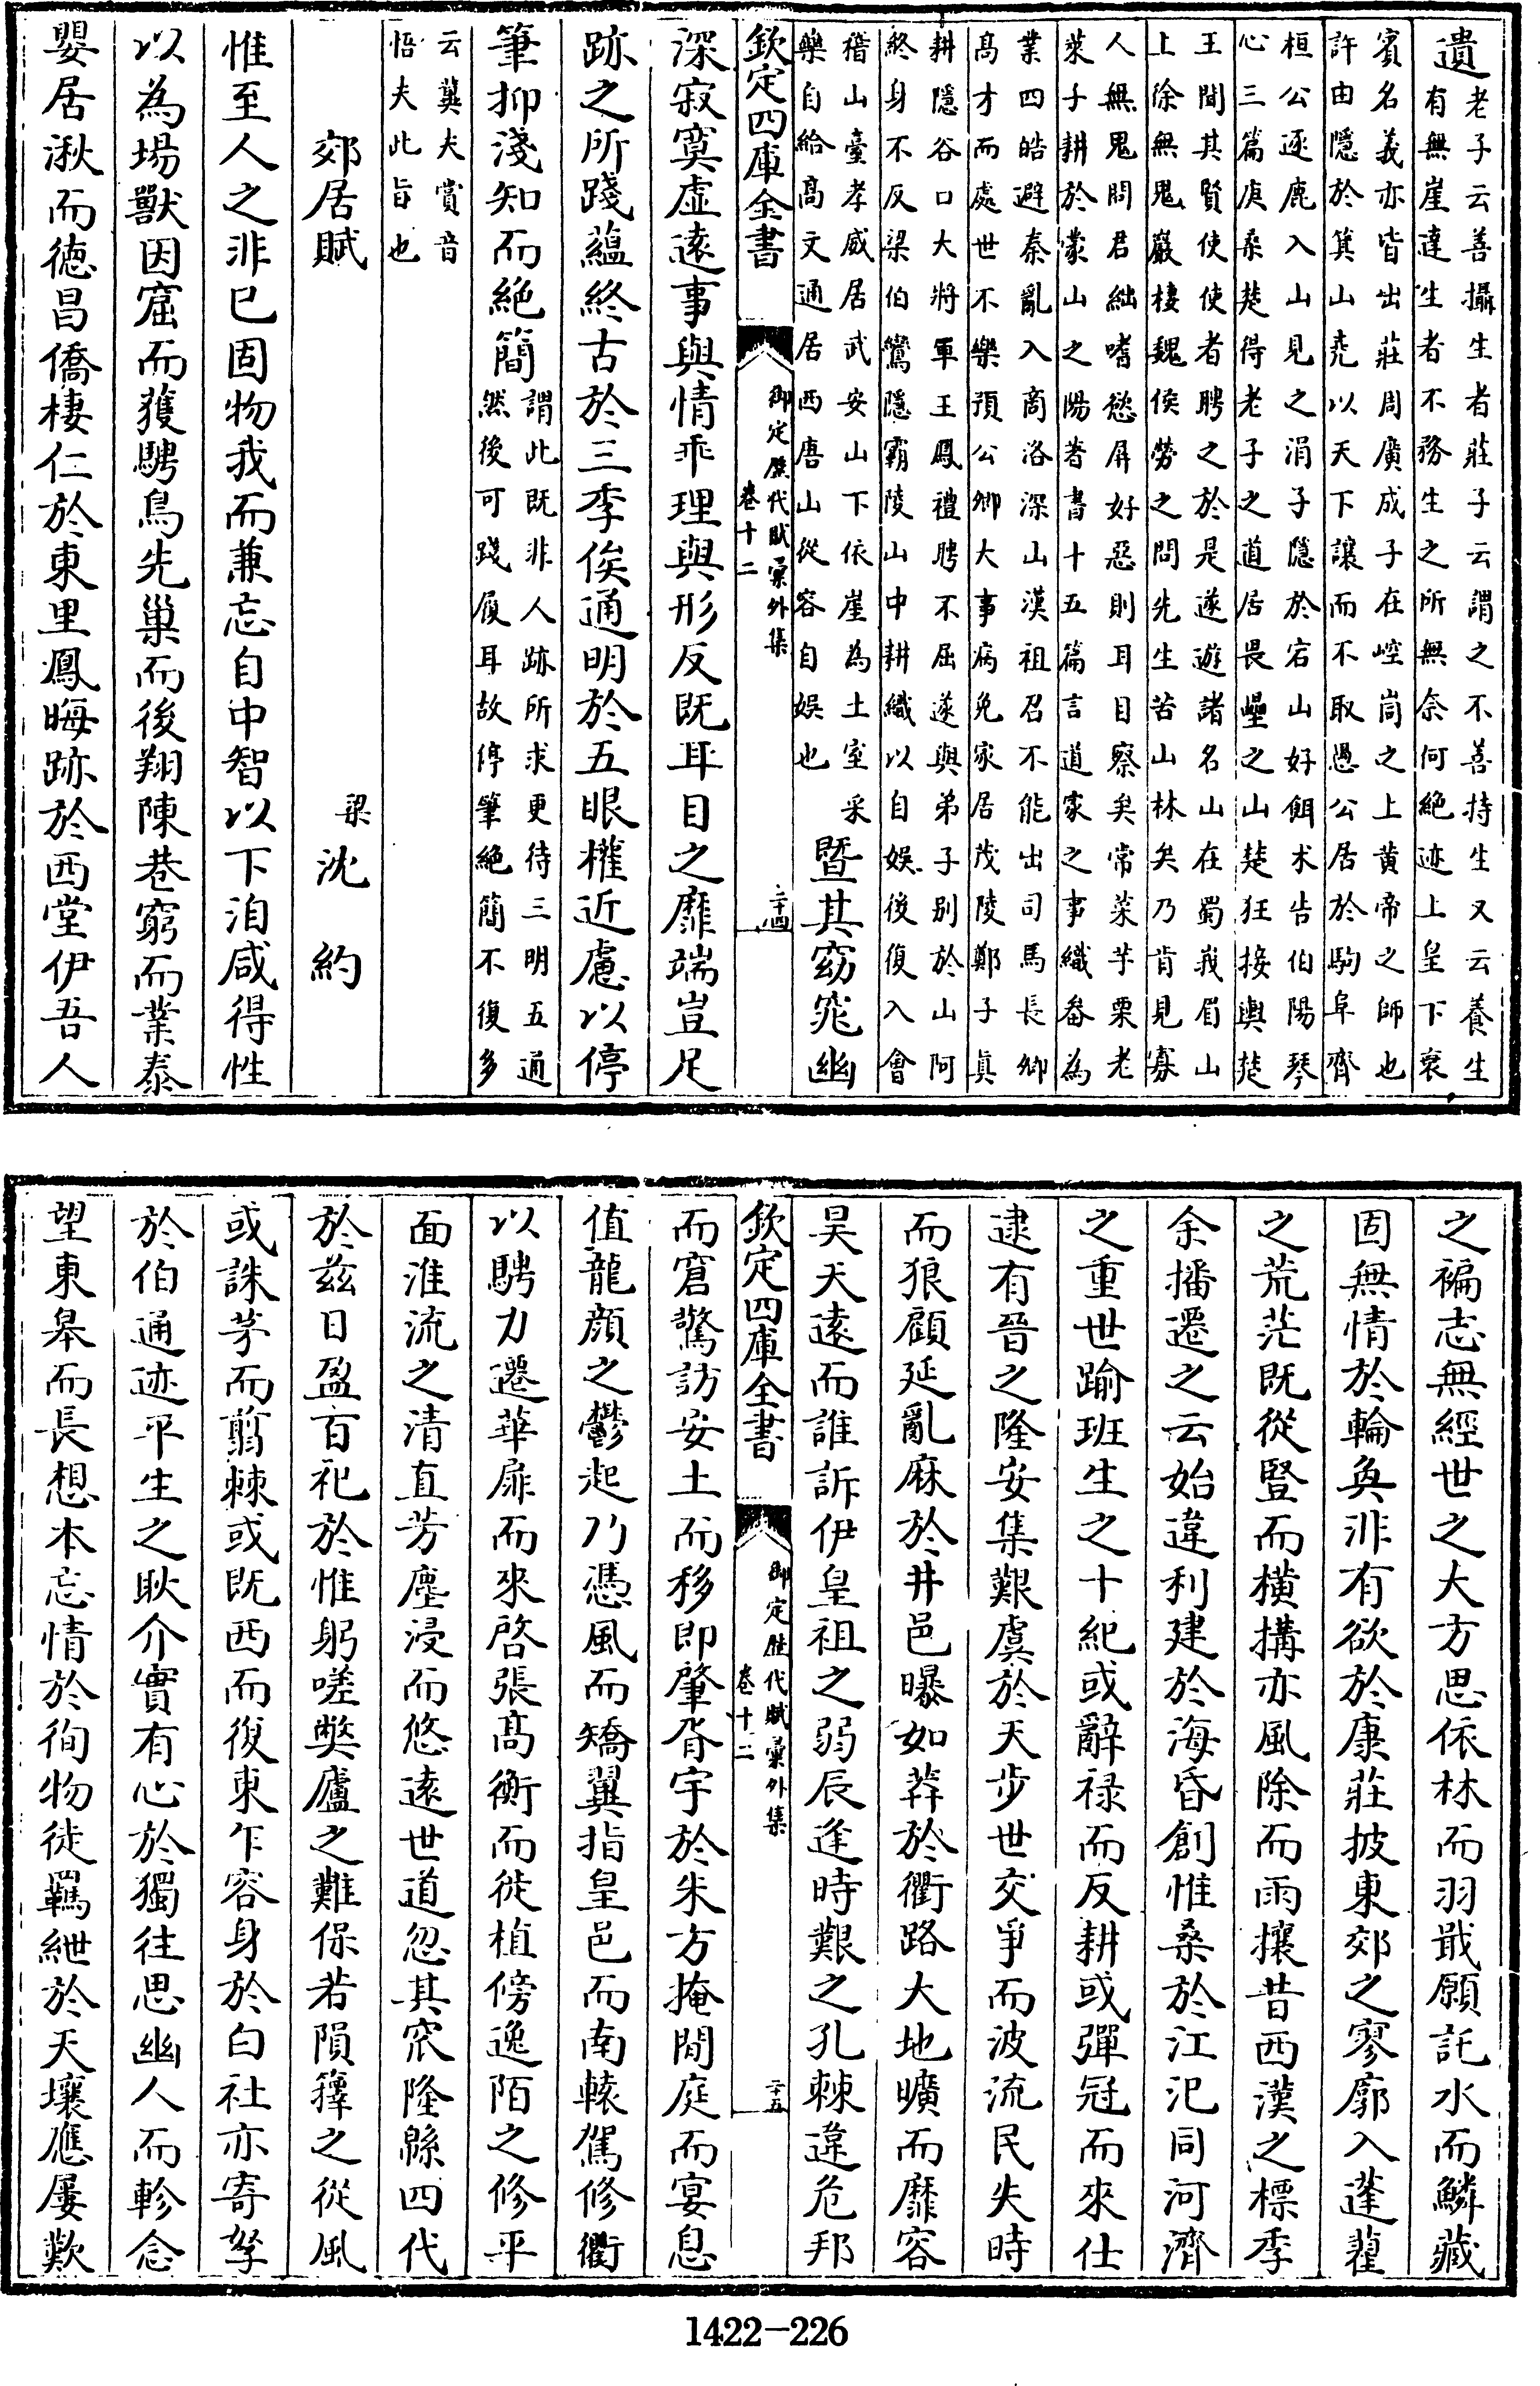 遺老子云善攝生者莊子云謂之不善持生又云養生
有無崖達生者不務生之所無奈何絶迹上皇下衰
賓名義亦皆出莊周廣成子在崆峒之上黄帝之師也
許由隱於箕山堯以天下讓而不取愚公居於駒阜齊
桓公逐鹿入山見之涓子隱於宕山好餌术告伯陽琴
心三篇庚桑楚得老子之道居畏壘之山楚狂接輿楚
王聞其賢使使者聘之於是遂遊諸名山在蜀峩眉山
上徐無鬼巖棲魏侯勞之問先生苦山林矣乃肯見寡
人無鬼問君絀嗜慾屏好惡則耳目察矣常菜芋栗老
萊子耕於蒙山之陽著書十五篇言道家之事織畚為
業四皓避秦亂入商洛深山漢祖召不能出司馬長卿
高才而處世不樂預公卿大事病免家居茂陵鄭子真
耕隱谷口大將軍王鳳禮聘不屈遂與弟子别於山阿
終身不反梁伯鸞隱霸陵山中耕織以自娛後復入會
稽山臺孝威居武安山下依崖為土室采
藥自給高文通居西唐山從容自娛也
暨其窈窕幽
欽定四庫全書
御定歷代賦彙外集
卷十二
二十四
深寂寞虚遠事與情乖理與形反既耳目之靡端豈足
跡之所踐藴終古於三季俟通明於五眼權近慮以停
筆抑淺知而絶簡謂此既非人跡所求更待三明五通
然後可踐履耳故停筆絶簡不復多
云冀夫賞音
悟夫此旨也
郊居賦
梁沈約
惟至人之非已固物我而兼忘自中智以下洎咸得性
以為場獸因窟而獲騁鳥先巢而後翔陳巷窮而業泰
嬰居湫而徳昌僑棲仁於東里鳳晦跡於西堂伊吾人
之褊志無經世之大方思依林而羽戢願託水而鱗藏
固無情於輪奐非有欲於康莊披東郊之寥廓入蓬藋
之荒茫既從豎而橫搆亦風除而雨攘昔西漢之標季
余播遷之云始違利建於海昏創惟桑於江汜同河濟
之重世踰班生之十紀或辭禄而反耕或彈冠而來仕
逮有晉之隆安集艱虞於天步世交爭而波流民失時
而狼顧延亂麻於井邑曝如莽於衢路大地曠而靡容
昊天遠而誰訴伊皇祖之弱辰逢時艱之孔棘違危邦
欽定四庫全書
御定歷代賦彙外集
卷十二
二十五
而窘驚訪安土而移即肇胥宇於朱方掩閒庭而宴息
值龍顔之鬱起乃憑風而矯翼指皇邑而南轅駕修衢
以騁力遷華扉而來啓張高衡而徙植傍逸陌之修平
面淮流之清直芳塵浸而悠遠世道忽其窊隆緜四代
於兹日盈百祀於惟躬嗟弊廬之難保若隕籜之從風
或誅茅而翦棘或既西而復東乍容身於白社亦寄孥
於伯通迹平生之耿介實有心於獨往思幽人而軫念
望東皋而長想本忘情於徇物徒羈紲於天壤應屢歎
1422—226